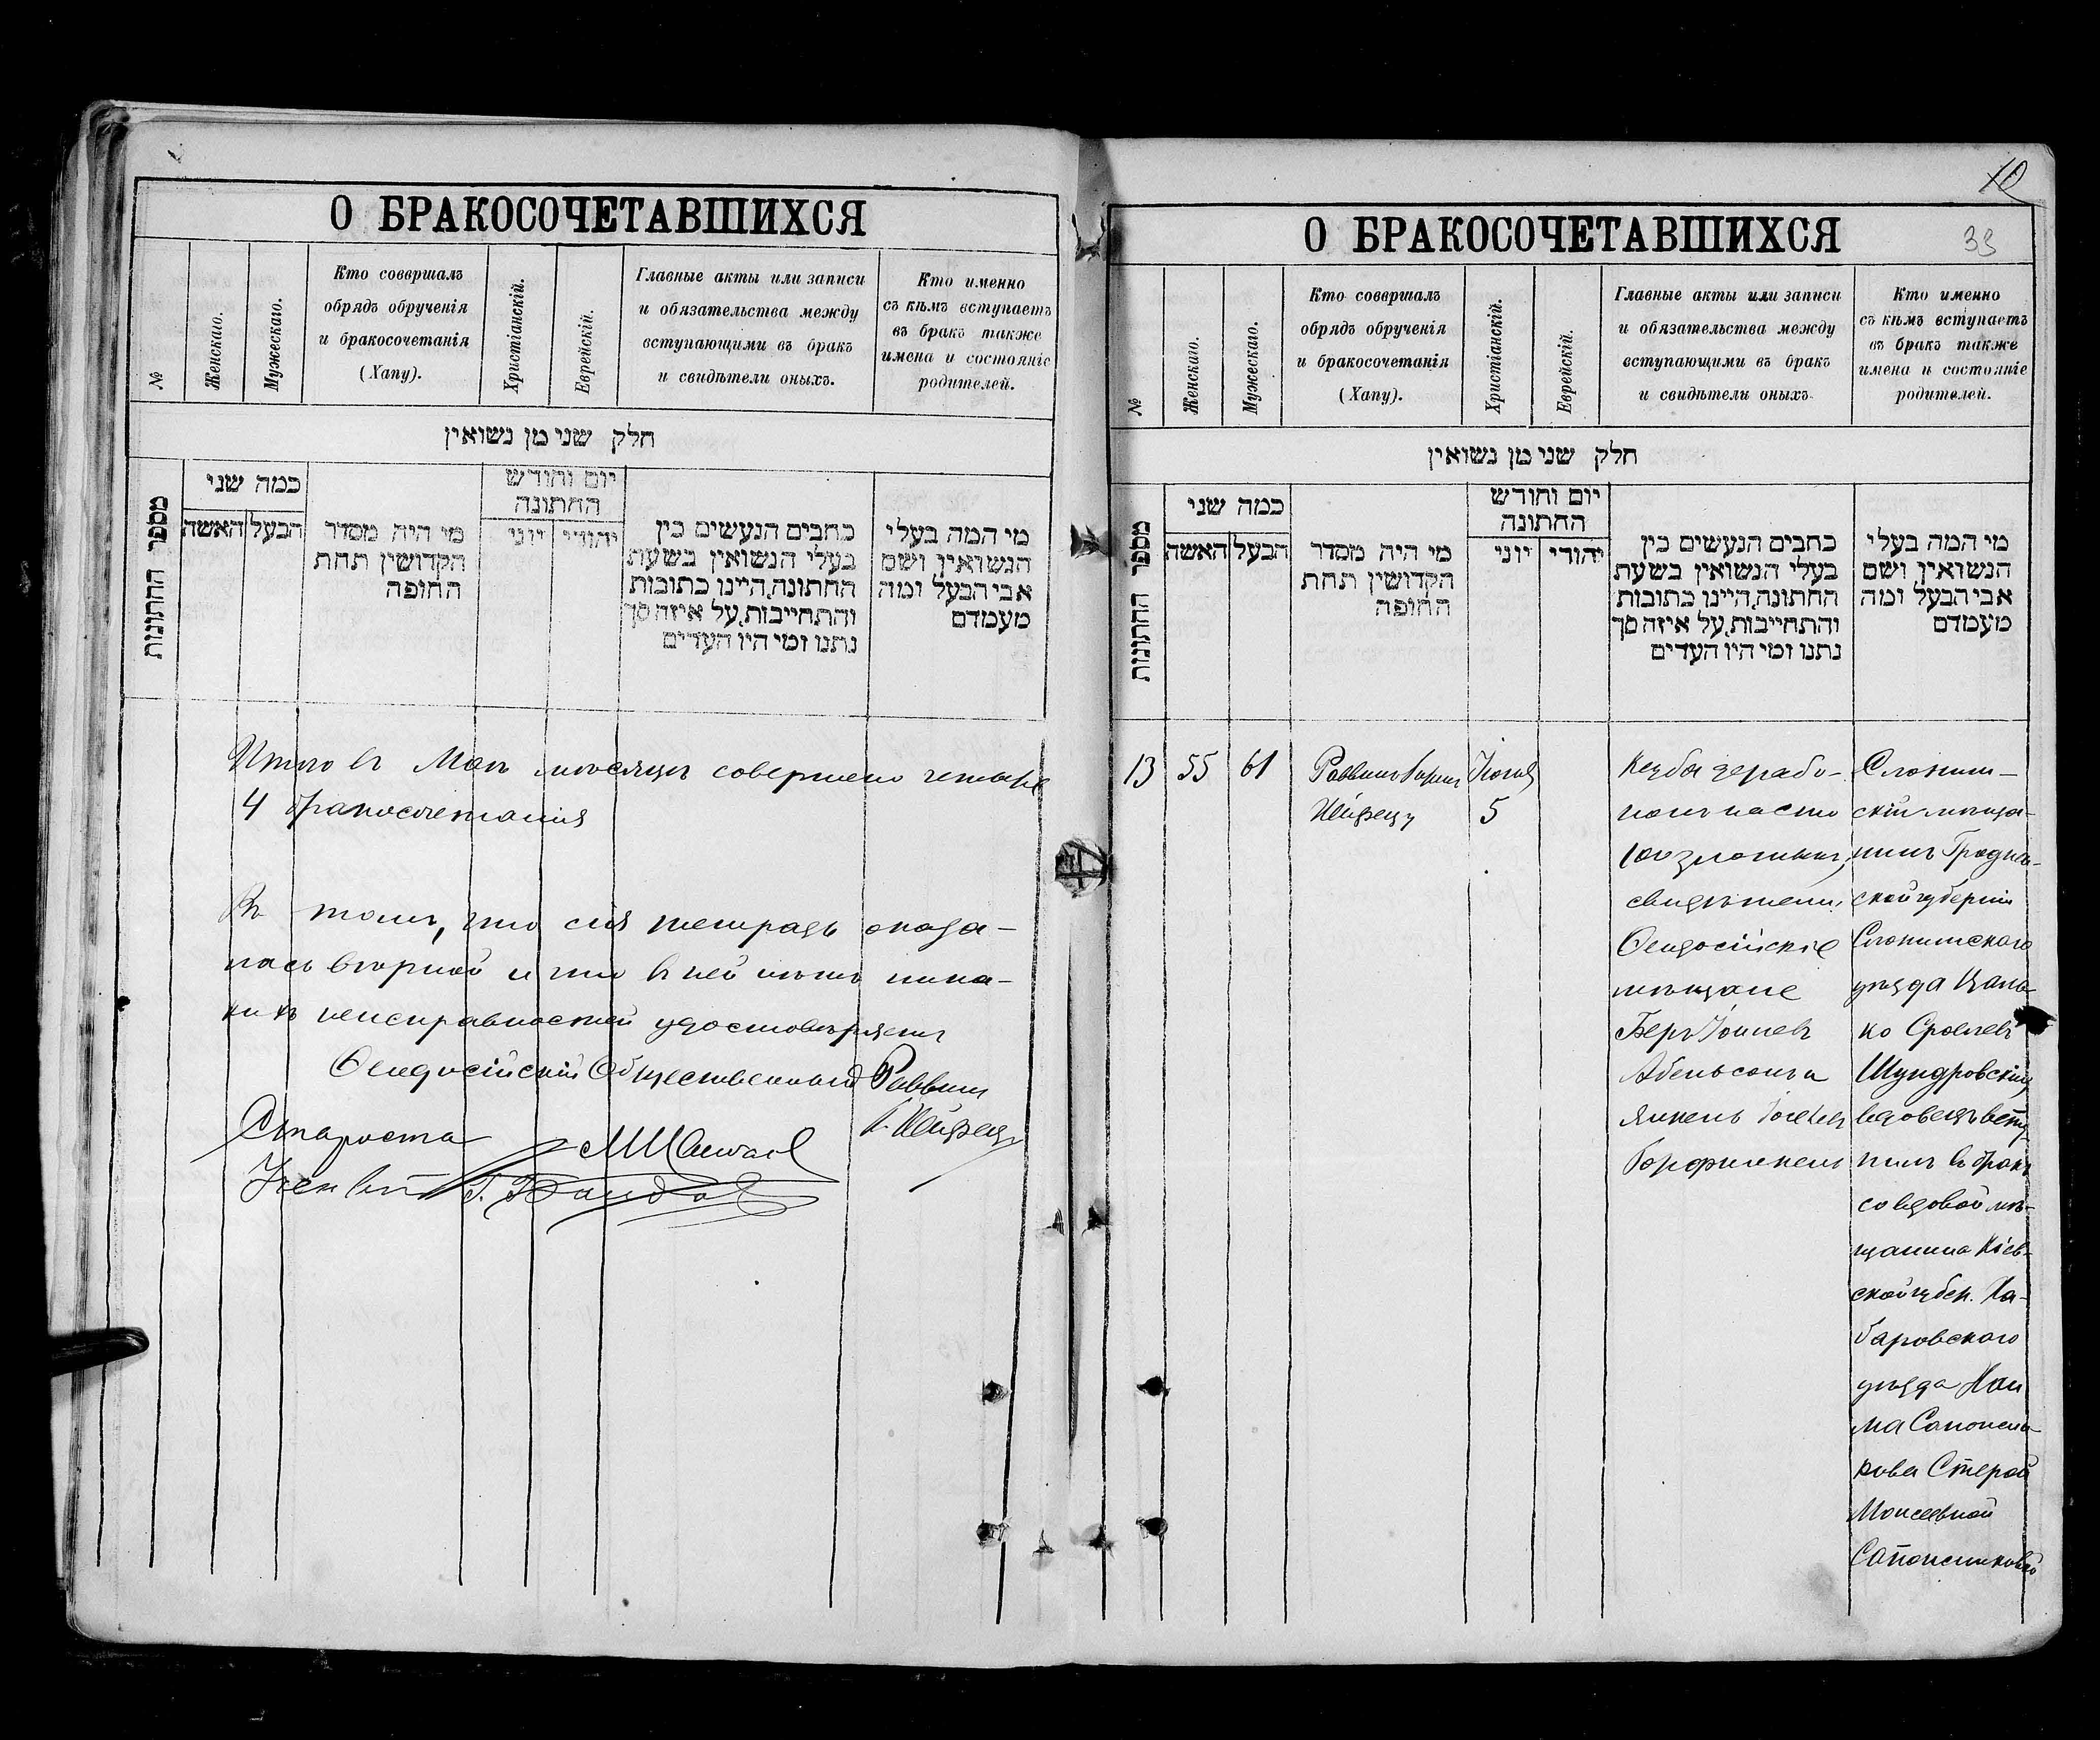 О БРАКОСОЧЕТАВШИХСЯ
№
Женскаго.
Мужескаго.
Кто совершалъ
обрядъ обрученія
и бракосочетанія
(Хапу).
Христіанскій.
Еврейскій.
Главные акты или записи
и обязательства между
вступающими въ бракъ
и свидѣтели оныхъ.
Кто именно
съ кѣмъ вступаетъ
въ бракъ также
имена и состояніе
родителей.
חלק שני מן נשואין
מספר החתונות
כמה שני
הבעל
האשה
מי היה מסדר
הקדושין תחת
החופה
יום וחודש
החתונה
יהודי
יוני
כתבים הנעשים בין
בעלי הנשואין בשעת
החתונה, היינו כתובות
והתחייבות, על איזה סך
נתנו ומי היו העדים
מי המה בעלי
הנשואין ושם
אבי הבעל ומה
מעמדם
Итого въ Маѣ мѣсяцѣ совершено четыре
4 бракосочетанія
Въ томъ, что сія тетрадь оказа-
лась вѣрной и что въ ней нѣтъ ника-
кихъ неисправностей удостовѣряетъ
Ѳеодосійскій Общественный Раввинъ
Староста
О БРАКОСОЧЕТАВШИХСЯ
10
39
№
Женскаго.
Мужескаго.
Кто совершалъ
обрядъ обрученія
и бракосочетанія
(Хапу).
Христіанскій.
Еврейскій.
Главные акты или записи
и обязательства между
вступающими въ бракъ
и свидѣтели оныхъ.
Кто именно
съ кѣмъ вступаетъ
въ бракъ также
имена и состояніе
родителей.
חלק שני מן נשואין
מספר החתונות
כמה שני
הבעל
האשה
מי היה מסדר
הקדושין תחת
החופה
יום וחודש
החתונה
יהודי
יוני
כתבים הנעשים בין
בעלי הנשואין בשעת
החתונה, היינו כתובות
והתחייבות, על איזה סך
נתנו ומי היו העדים
מי המה בעלי
הנשואין ושם
אבי הבעל ומה
מעמדם
13
55
61
Раввинъ
Хейфецъ
Іюня
5
Кецба
100 злотыхъ,
свидѣтели:
Ѳеодосійскіе
мѣщане
Беръ
Абельсонъ и
Янкель
Слоним-
скій мѣща-
нинъ Гроднен-
ской губерніи
Слонимскаго
уѣзда
ко Сроелевъ
Шундровскій,
вдовецъ всту-
пилъ въ бракъ
со вдовой мѣ-
щанина Кіев-
ской губер.
уѣзда Хаи
ма Сапожни-
кова Стерой
Моисеевной
Сапожниковой